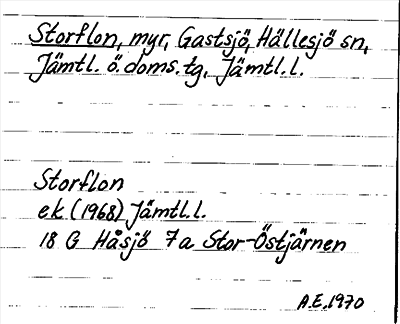 Storflon, myr, Gastsjö, Hällesjö sn,
Jämtl. ö. doms. tg, Jämtl.l.
Storflon
ek (1968) Jämtl.l.
18 G Håsjö 7a Stor-Östjärnen
A.E. 1970